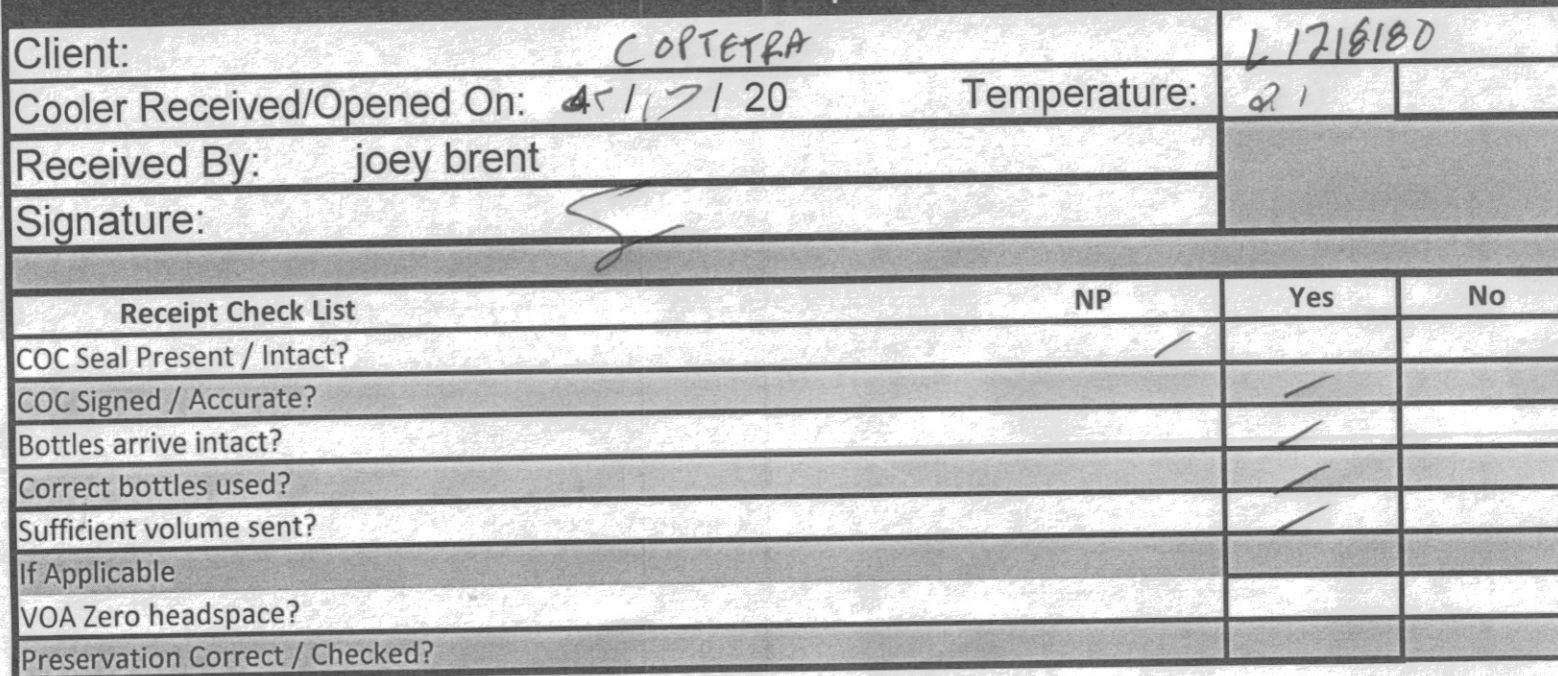 Client: COPTETRA L1218180
Cooler Received/Opened On: / 20 Temperature: 21
Received By: joey brent
Signature:
Receipt Check List NP Yes No
COC Seal Present / Intact? /
COC Signed / Accurate? /
Bottles arrive intact? /
Correct bottles used? /
Sufficient volume sent? /
If Applicable
VOA Zero headspace?
Preservation Correct / Checked?